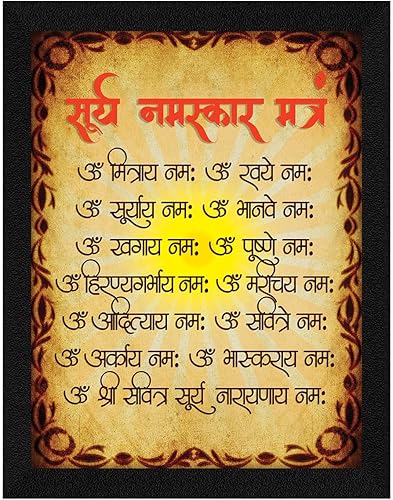 सूर्य नमस्कार मत्रं
ॐ मित्राय नमः ॐ रवये नमः
ॐ सूर्याय नमः ॐ भानवे नमः
ॐ खगाय नमः ॐ पूष्णे नमः
ॐ हिरण्यगर्भाय नमः ॐ मरीचय नमः
ॐ आदित्याय नमः ॐ सवित्रे नमः
ॐ अर्काय नमः ॐ भास्कराय नमः
ॐ श्री सवित्र सूर्य नारायणाय नमः